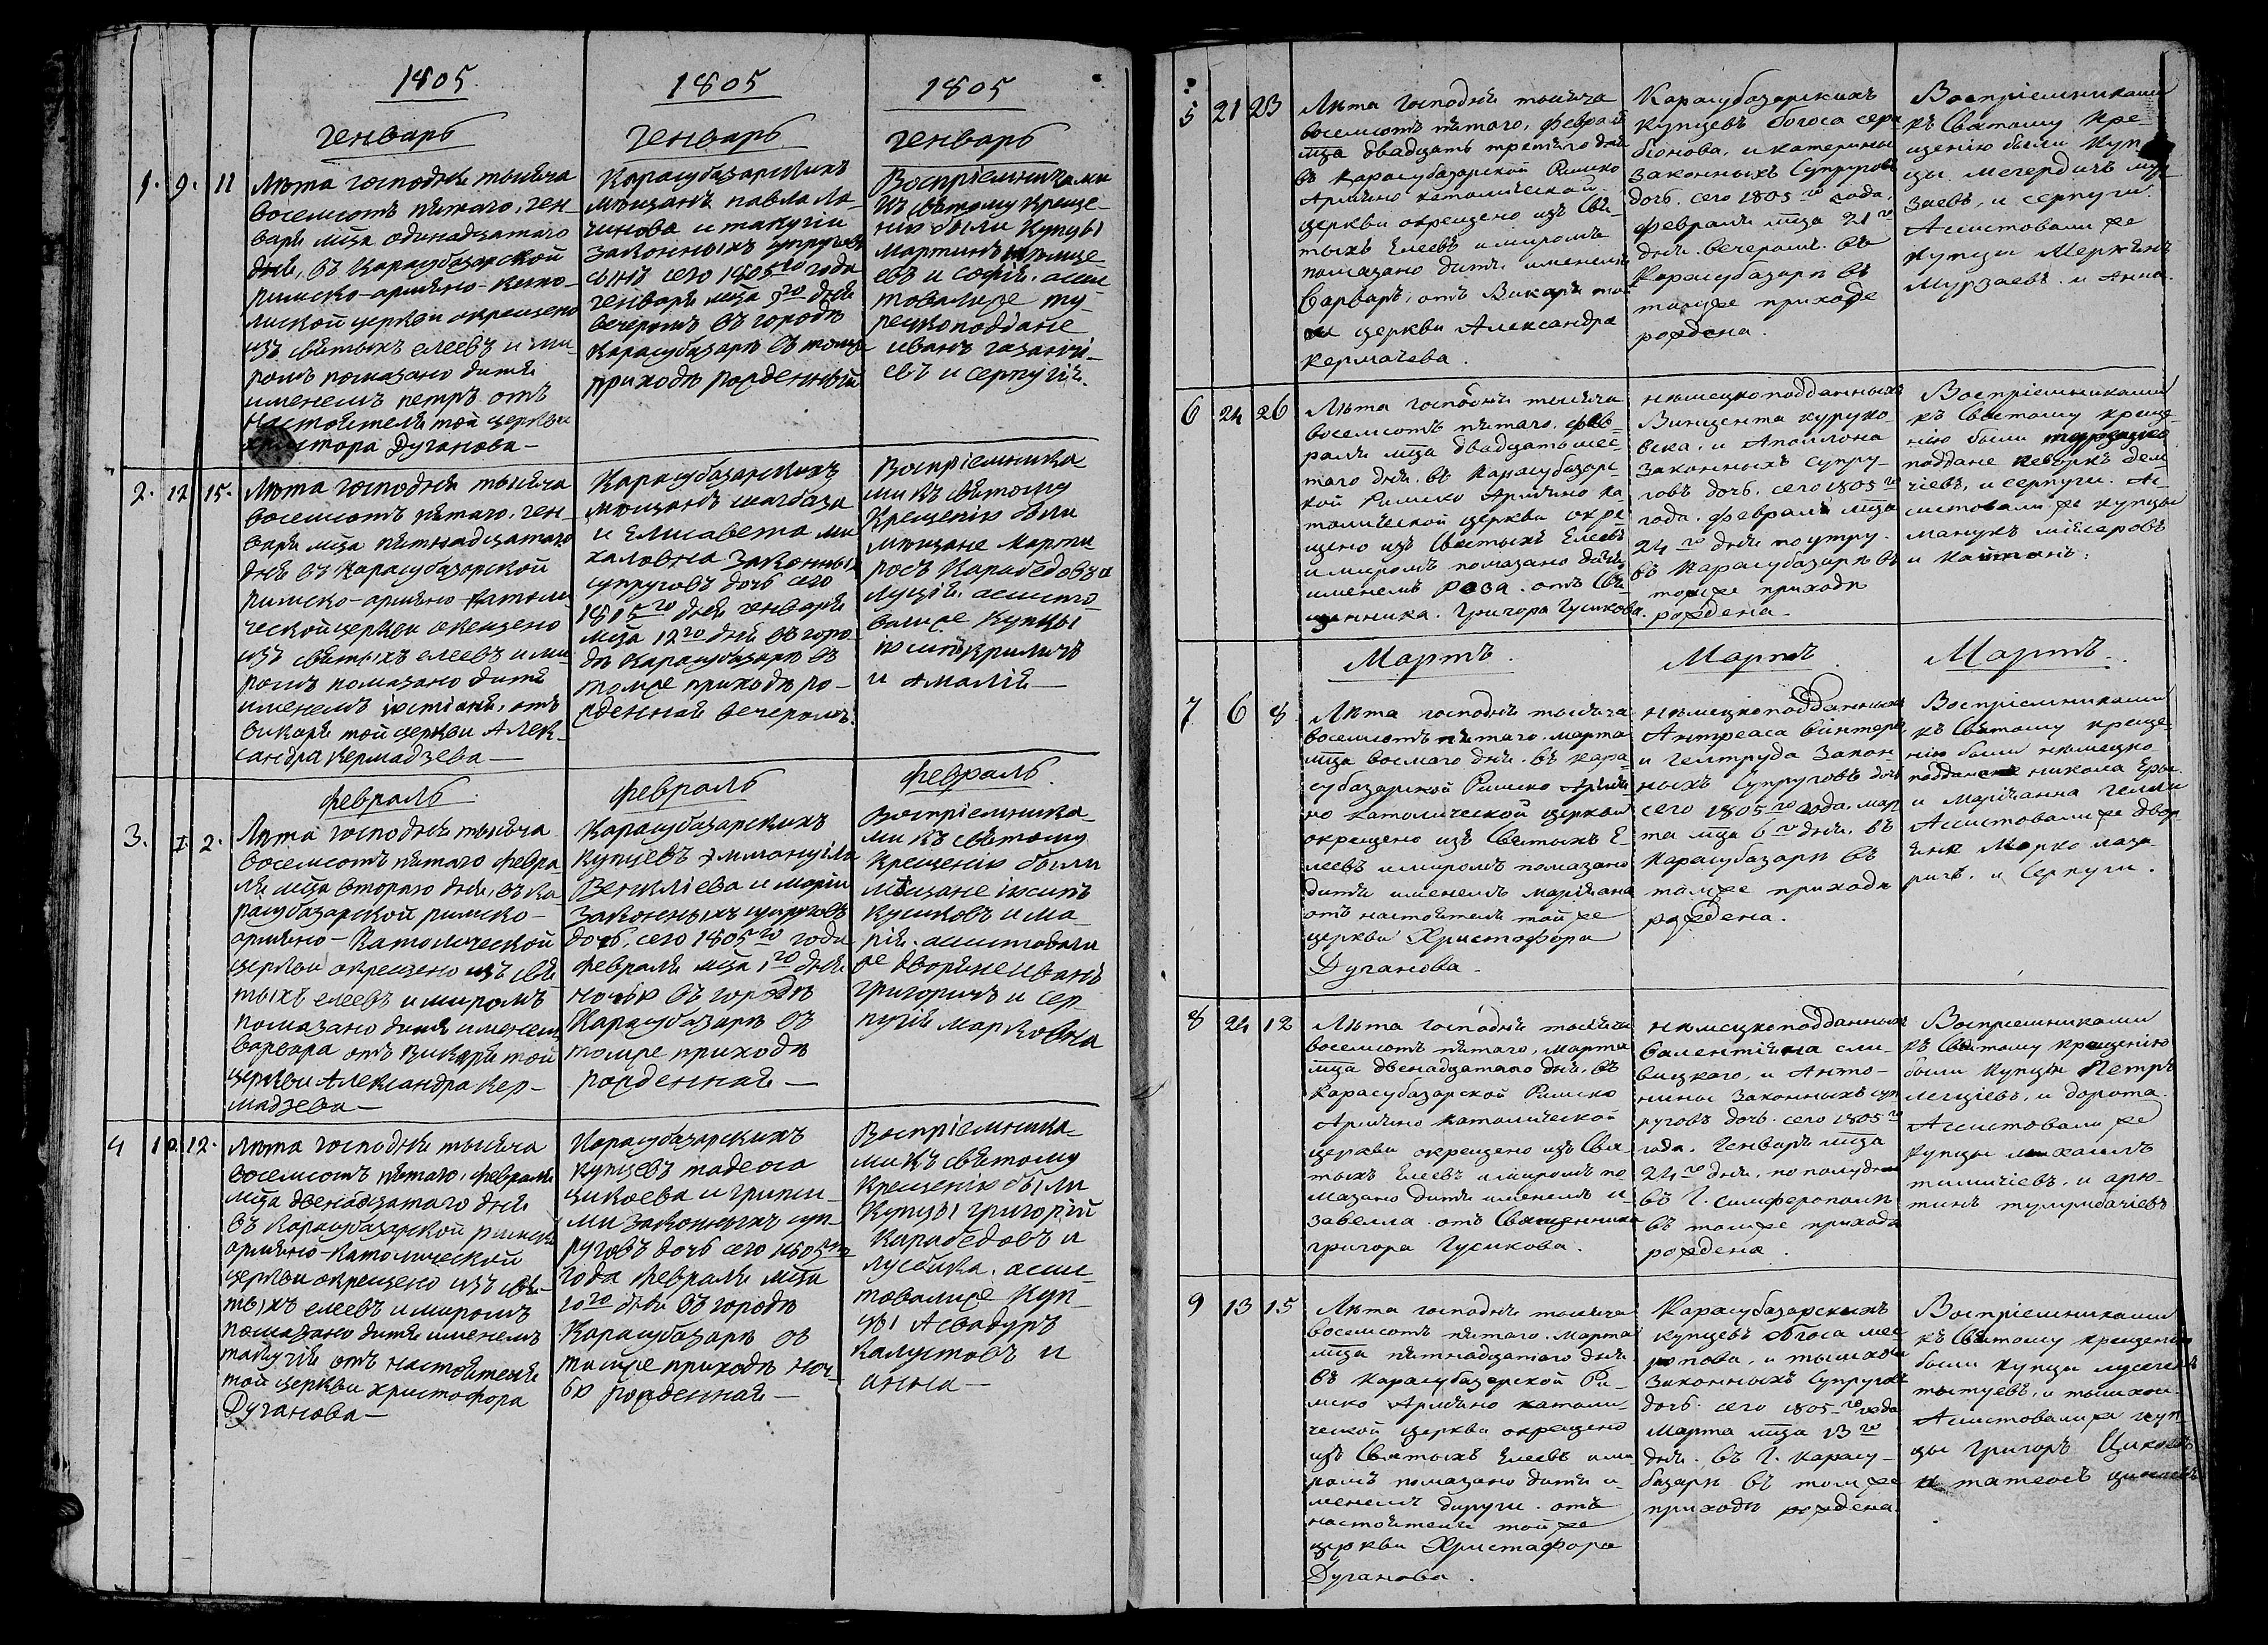 1805
Генварь
1. 9. 11
Лѣта господня тысяча
восемсотъ пятаго, ген-
варя мца одинадцатаго
дня, въ Карасубазарской
римско-армяно-като-
лиской церкви окрещено
изъ святыхъ елеевъ и ми-
ромъ помазано дитя
именемъ петръ отъ
настоятеля той церкви
христора Дуганова —
1805
Генварь
Карасубазарскихъ
мѣщанъ павла ла-
чинова и такугіи
законныхъ супруговъ
сынъ сего 1805го года
генваря мца 9го дня
вечеромъ въ городѣ
Карасубазарѣ въ томже
приходѣ рожденный
1805
Генварь
Воспріемниками
къ святому креще-
нію были Купцы
мартинъ
евъ и софія. асис-
товалиже ту-
рецкоподдане
иванъ газанчі-
евъ и серпугія.
2. 12 15.
Лѣта господня тысяча
восемсотъ пятаго, ген-
варя мца пятнадцатаго
дня въ Карасубазарской
римско-армяно-католи
ческой церкви окрещено
изъ святыхъ елеевъ и ми-
ромъ помазано дитя
именемъ іустіанія, отъ
викарія той церкви Алек-
сандра Кермадзева —
Карасубазарскихъ
мѣщанъ шагбаза
и Елисавета ми
халовна законныхъ
супруговъ дочь сего
1805го дня генваря
мца 12го дня въ горо-
дѣ Карасубазарѣ въ
томже приходѣ ро-
жденная вечеромъ.
Воспріемника-
ми къ святому
крещенію были
мѣщане Марти
росъ Карабедовъ и
луція. асисто-
валиже Купцы
іосипъ кримичъ
и Амалія —
Февраль
3. 1. 2.
Лѣта господня тысяча
восемсотъ пятаго февра-
ля мца втораго дня, въ Ка
расубазарской римско-
армяно-католической
церкви окрещено изъ свя
тыхъ елеевъ и миромъ
помазано дитя именемъ
варвара отъ викарія той
церкви Александра Кер-
мадзева —
Февраль
Карасубазарскихъ
купцевъ эммануила
Векиліева и маріи
законныхъ супруговъ
дочь, сего 1805го года
февраля мца 1го дня
ночью въ городѣ
Карасубазарѣ въ
томже приходѣ
рожденная —
Февраль.
Воспріемника-
ми къ святому
крещенію были
мѣщане іосипъ
кусиковъ и ма-
рія. асистовали
же дворяне иванъ
григоричъ и сер
пугія марковна
4 10. 12.
Лѣта господня тысяча
восемсотъ пятаго, февраля
мца двенадцатаго дня
въ Карасубазарской римско
армяно-католической
церкви окрещено изъ свя
тыхъ елеевъ и миромъ
помазано дитя именемъ
такугія отъ настоятеля
той церкви христофора
Дуганова —
Карасубазарскихъ
купцевъ тадеоса
цикоева и грипси-
ми законныхъ суп-
руговъ дочь сего 1805го
года февраля мца
10го дня въ городѣ
Карасубазарѣ въ
томже приходѣ ноч-
ью рожденная —
Воспріемника-
ми къ святому
крещенію были
Купцы григорій
Карабедовъ и
лусбика. асис-
товалиже Куп-
цы Асвадуръ
Калустовъ и
анна —
5 21 23
Лѣта господня тысяча
восемсотъ пятаго, февраля
мца двадцать третяго дня
въ Карасубазарской Римско
Армяно католической
церкви окрещено изъ Свя-
тыхъ Елеевъ и миромъ
помазано дитя именемъ
Варваръ, отъ Викарія той
церкви Александра
кермачева.
Карасубазарскихъ
купцевъ богоса сера
біонова, и катерины
законныхъ Супруговъ
дочь. сего 1805го года,
февраля мца 21го
дня. вечеромъ. въ
Карасубазарѣ въ
томже приходѣ
рождена.
Воспріемниками
къ Святому Кре-
щенію были Куп-
цы мегердичъ мур
заевъ, и серпуги.
Асистовали же
купцы
Мурзаевъ. и Анна.
6 24 26
Лѣта господня тысяча
восемсотъ пятаго, фев-
раля мца двадцать шес-
таго дня. въ Карасубазарс
кой Римско Армяно ка-
толической церкви окре
щено изъ Святыхъ Елеевъ
и миромъ помазано дитя
именемъ Роза. отъ Свя
щенника. Григора Гусикова.
нѣмецкоподданныхъ
Винцента куруко-
вска, и Аполлона
законныхъ супру-
говъ дочь. сего 1805го
года. февраля мца
24го дня по утру.
въ Карасубазарѣ въ
томже приходѣ
рождена.
Воспріемниками
къ Святому креще-
нію были турецко
поддане кеворкъ дем
чіевъ, и серпуги. Ас-
систовали же купцы
манукъ мисеровъ
и кайтанъ.
Мартъ.
7 6 8
Лѣта господня тысяча
восемсотъ пятаго. марта
мца восмаго дня. въ Кара-
субазарской Римско Армя
но католической церкви
окрещено изъ Святыхъ Е-
леевъ и миромъ помазано
дитя именемъ маріяна
отъ настоятеля тойже
церкви Христофора
Дуганова.
Мартъ.
нѣмецкоподданныхъ
Антреаса винтера
и гелтруда Закон-
ныхъ Супруговъ дочь
сего 1805го года. мар
та мца 6го дня. въ
Карасубазарѣ въ
томже приходѣ
рождена.
Мартъ.
Воспріемниками
къ Святому креще-
нію были нѣмецко
поддане никола
и маріанна
Асистовали же двор
яне Марко лаза-
ричъ. и Серпуги.
8 24 12
Лѣта господня тысяча
восемсотъ пятаго, марта
мца двенадцатаго дня. въ
Карасубазарской Римско
Армяно католической
церкви окрещено изъ Свя-
тыхъ Елеевъ и миромъ по
мазано дитя именемъ и-
забелла. отъ Священника
григора Гусикова.
нѣмецкоподданныхъ
валентіяна сли-
вицкаго, и Анто-
нины законныхъ суп
руговъ дочь. сего 1805го
года. Генваря мца
24го дня. по полудни
въ Г. симферополѣ
въ томже приходѣ
рождена.
Воспріемниками
къ Святому крещенію
были купцы Петръ
и дорота.
Асистовали же
купцы михаилъ
и арю-
тинъ тулумбачіевъ
9 13 15
Лѣта господня тысяча
восемсотъ пятаго. марта
мца пятнадцатаго дня
въ Карасубазарской Ри-
мско Армяно католи-
ческой церкви окрещено
изъ Святыхъ Елеевъ и ми
ромъ помазано дитя и-
менемъ дируги. отъ
настоятеля тойже
церкви Христафора
Дуганова.
Карасубазарскихъ
купцевъ богоса мес
ропова, и тышхои
законныхъ Супруговъ
дочь. сего 1805го года
Марта мца 13го
дня. въ Г. Карасу-
базарѣ въ томже
приходѣ рождена.
Воспріемниками
къ Святому крещенію
были купцы
и тышхои.
Асистовали же куп-
цы Григоръ Цикоевъ
и татеосъ цикоевъ